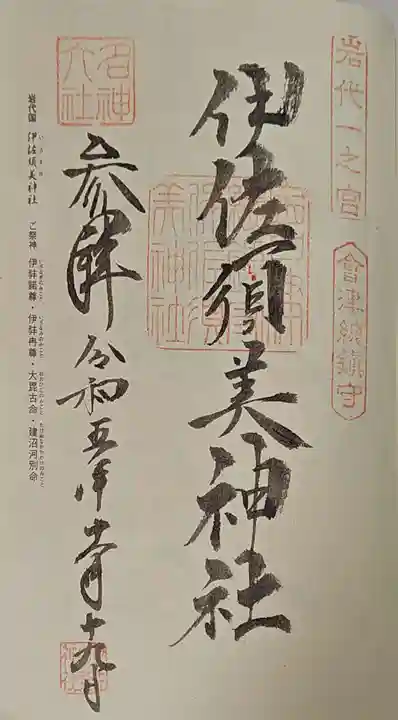 岩代一之宮
會津總鎮守
伊佐須美神社
名神大社
参拝
令和五年
十九日
岩代国 伊佐須美神社 ご祭神 伊弉諾尊・伊弉冉尊・大毘古命・建沼河別命